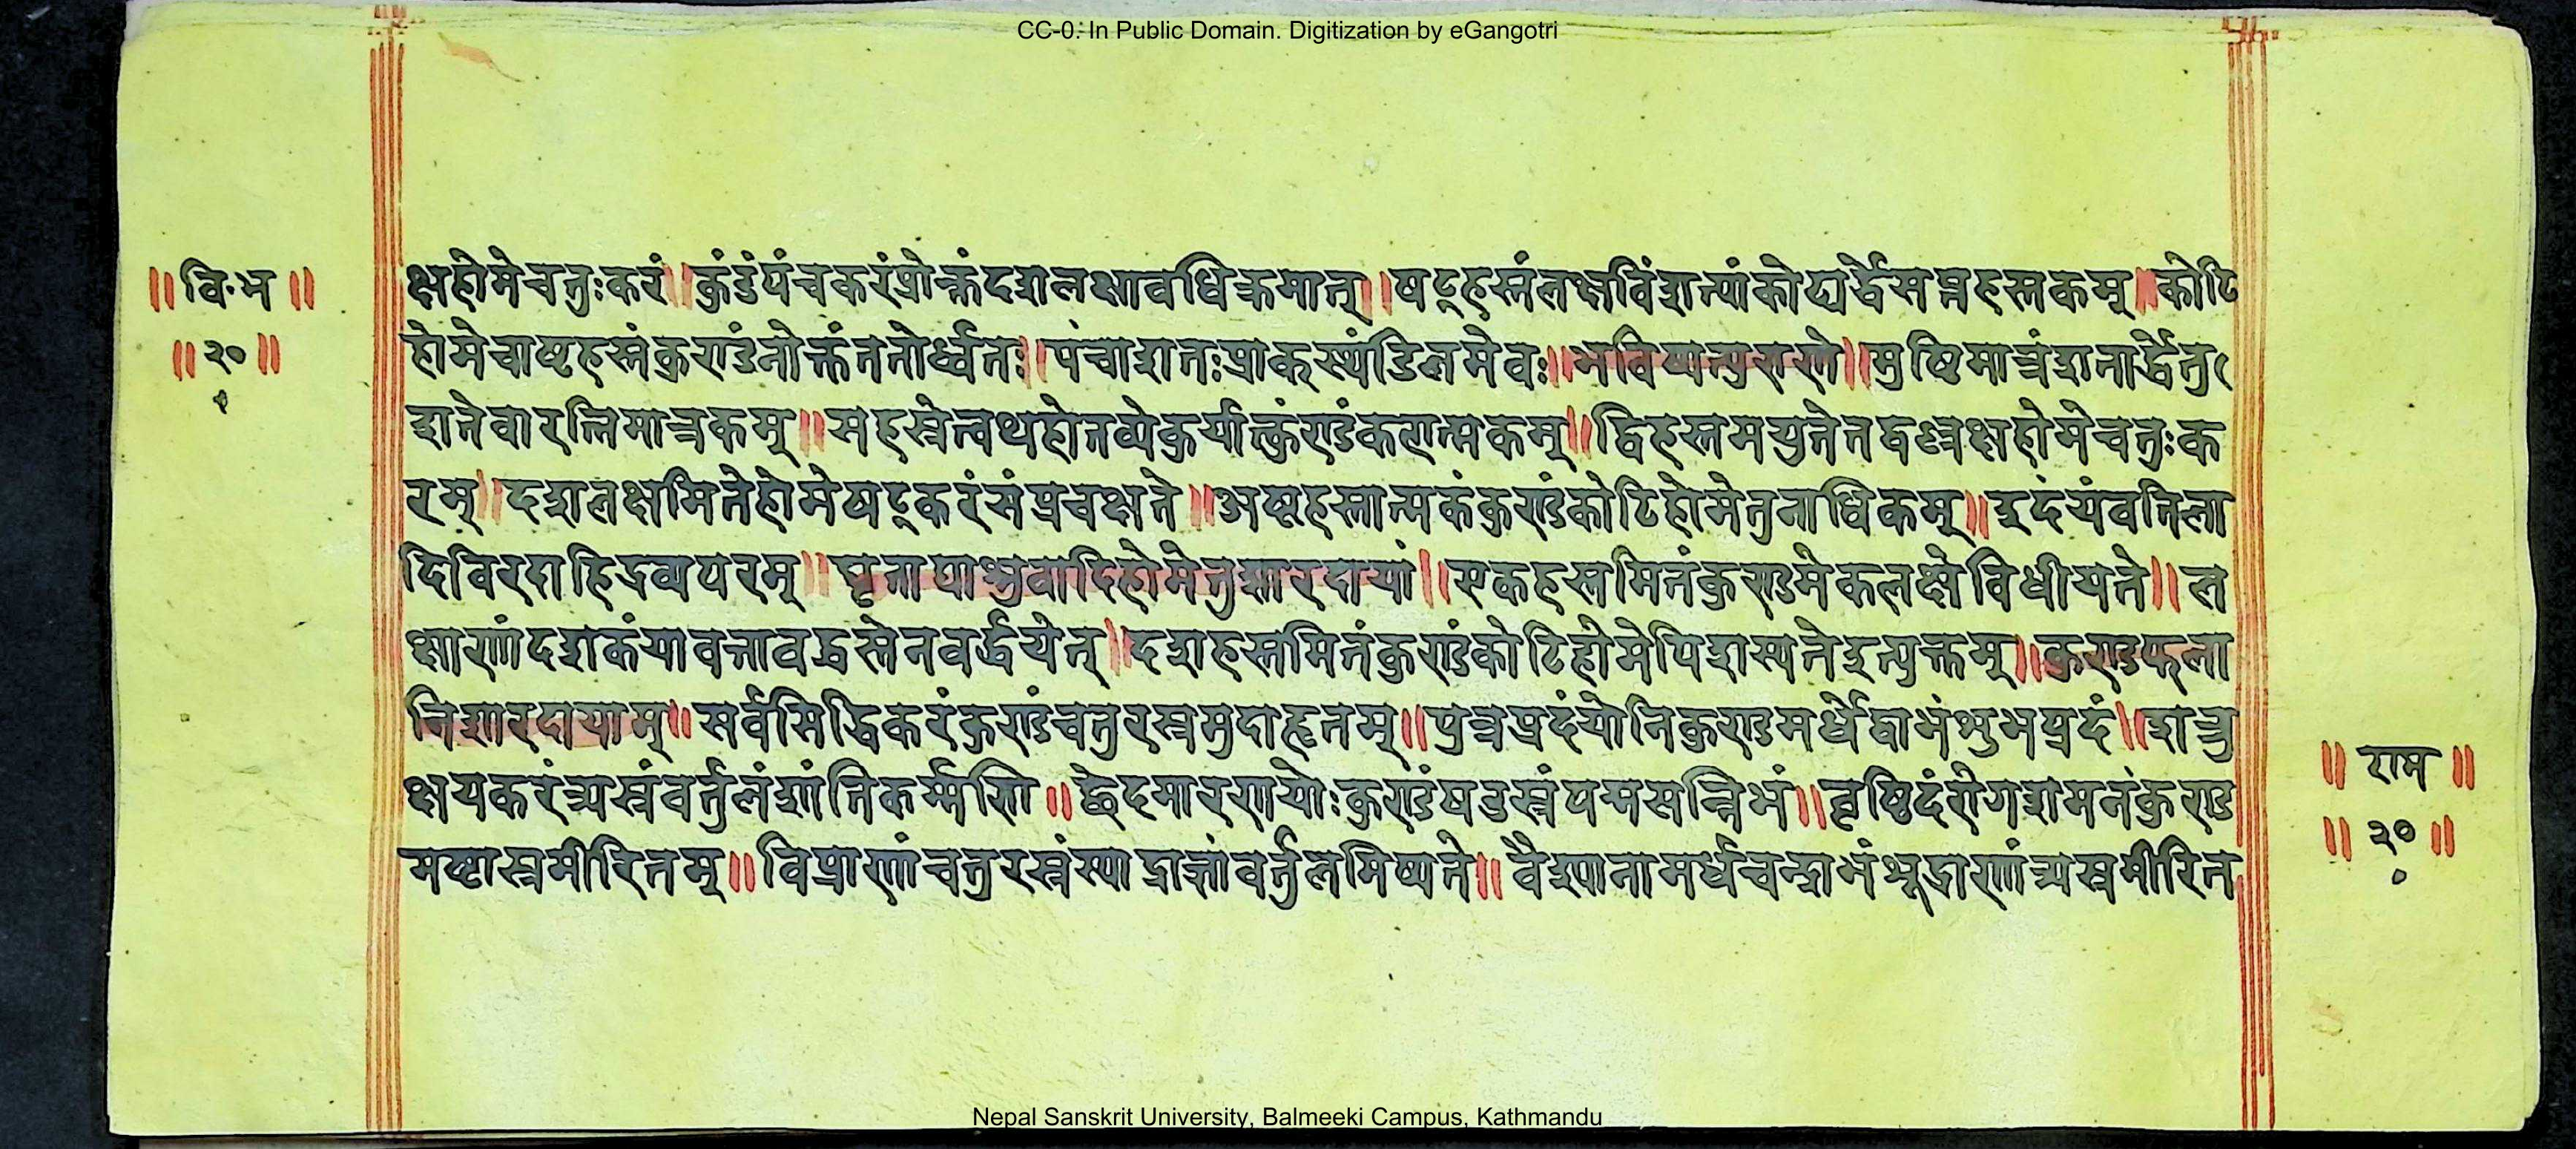 CC-0. In Public Domain. Digitization by eGangotri
॥वि·भ॥
॥२०॥
क्षहोमेचतुःकरं॥कुंडंपंचकरंप्रोक्तंदशलक्षावधिक्रमात्॥षट्हस्तंलक्षविंशत्यांकोट्यर्द्धेसप्तहस्तकम्॥कोटि
होमेचाष्टहस्तंकुराडंनोक्तंततोर्ध्वतः॥पंचाशतःप्राक्स्थंडिलमेवः॥भविष्यत्पुराणे॥मुष्टिमात्रंशतार्द्धेतु
शतेवारत्निमात्रकम्॥सहस्रेत्वथहोतव्येकुर्यात्कुंराडंकरात्मकम्॥द्विहस्तमयुतेतद्वल्लक्षहोमेचतुःक
रम्॥दशलक्षमितेहोमेषट्करंसंप्रचक्षते॥अष्टहस्तात्मकंकुराडंकोटिहोमेतुनाधिकम्॥इदंयंवतिला
दिविरदाहिद्रव्यपरम्॥घृताद्याश्रुवादिहोमेतुशारदायां॥एकहस्तमितंकुराडमेकलक्षेविधीयते॥ल
क्षाराणांदशकंयावत्तावद्धस्तेनवर्द्धयेत्॥दशहस्तमितंकुराडंकोटिहोमेपिदास्यतेइत्युक्तम्॥कुराडफला
निशारदायाम्॥सर्वसिद्धिकरंकुराडंचतुरस्रमुदाहृतम्॥पुत्रप्रदंयोनिकुराडमर्धेद्वाभंशुभप्रदं॥शत्रु
क्षयकरंत्र्यस्रंवर्तुलंशांतिकर्म्मणि॥छेदमारणयोःकुराडंषडस्रंपद्मसन्निभं॥वृष्टिदंरोगशमनंकुराड
मष्टास्रमीरितम्॥विप्राणांचतुरस्रंस्याद्राज्ञांवर्तुलमिष्यते॥वैश्यानामर्धचन्द्राभंशूद्राणांत्र्यस्रमीरित
॥राम॥
॥२०॥
Nepal Sanskrit University, Balmeeki Campus, Kathmandu